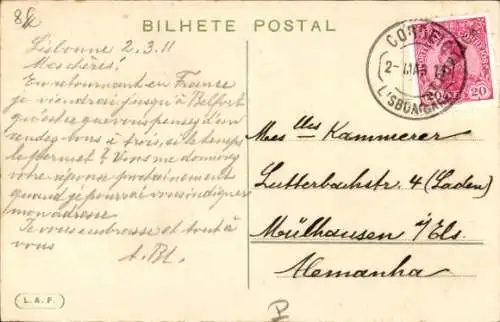 84
BILHETE POSTAL
Lisbonne 2.3.11
Mes chères!
En retournant en France
je viendrai jusqu'à Belfort
qu'est-ce que vous pensez d'un
rendez-vous à trois, si le temps
le permet? Vous me donnerez
votre réponse prochainement
quand je pourrai vous indiquer
mon adresse.
Je vous embrasse et tout à
vous
A. Bl.
L.A.F.
CORREIO
2-MAR
LISBOA
20
20
Mes lles Kammerer
Lutterbachstr. 4 (Laden)
Mülhausen i/Els.
Alemanha